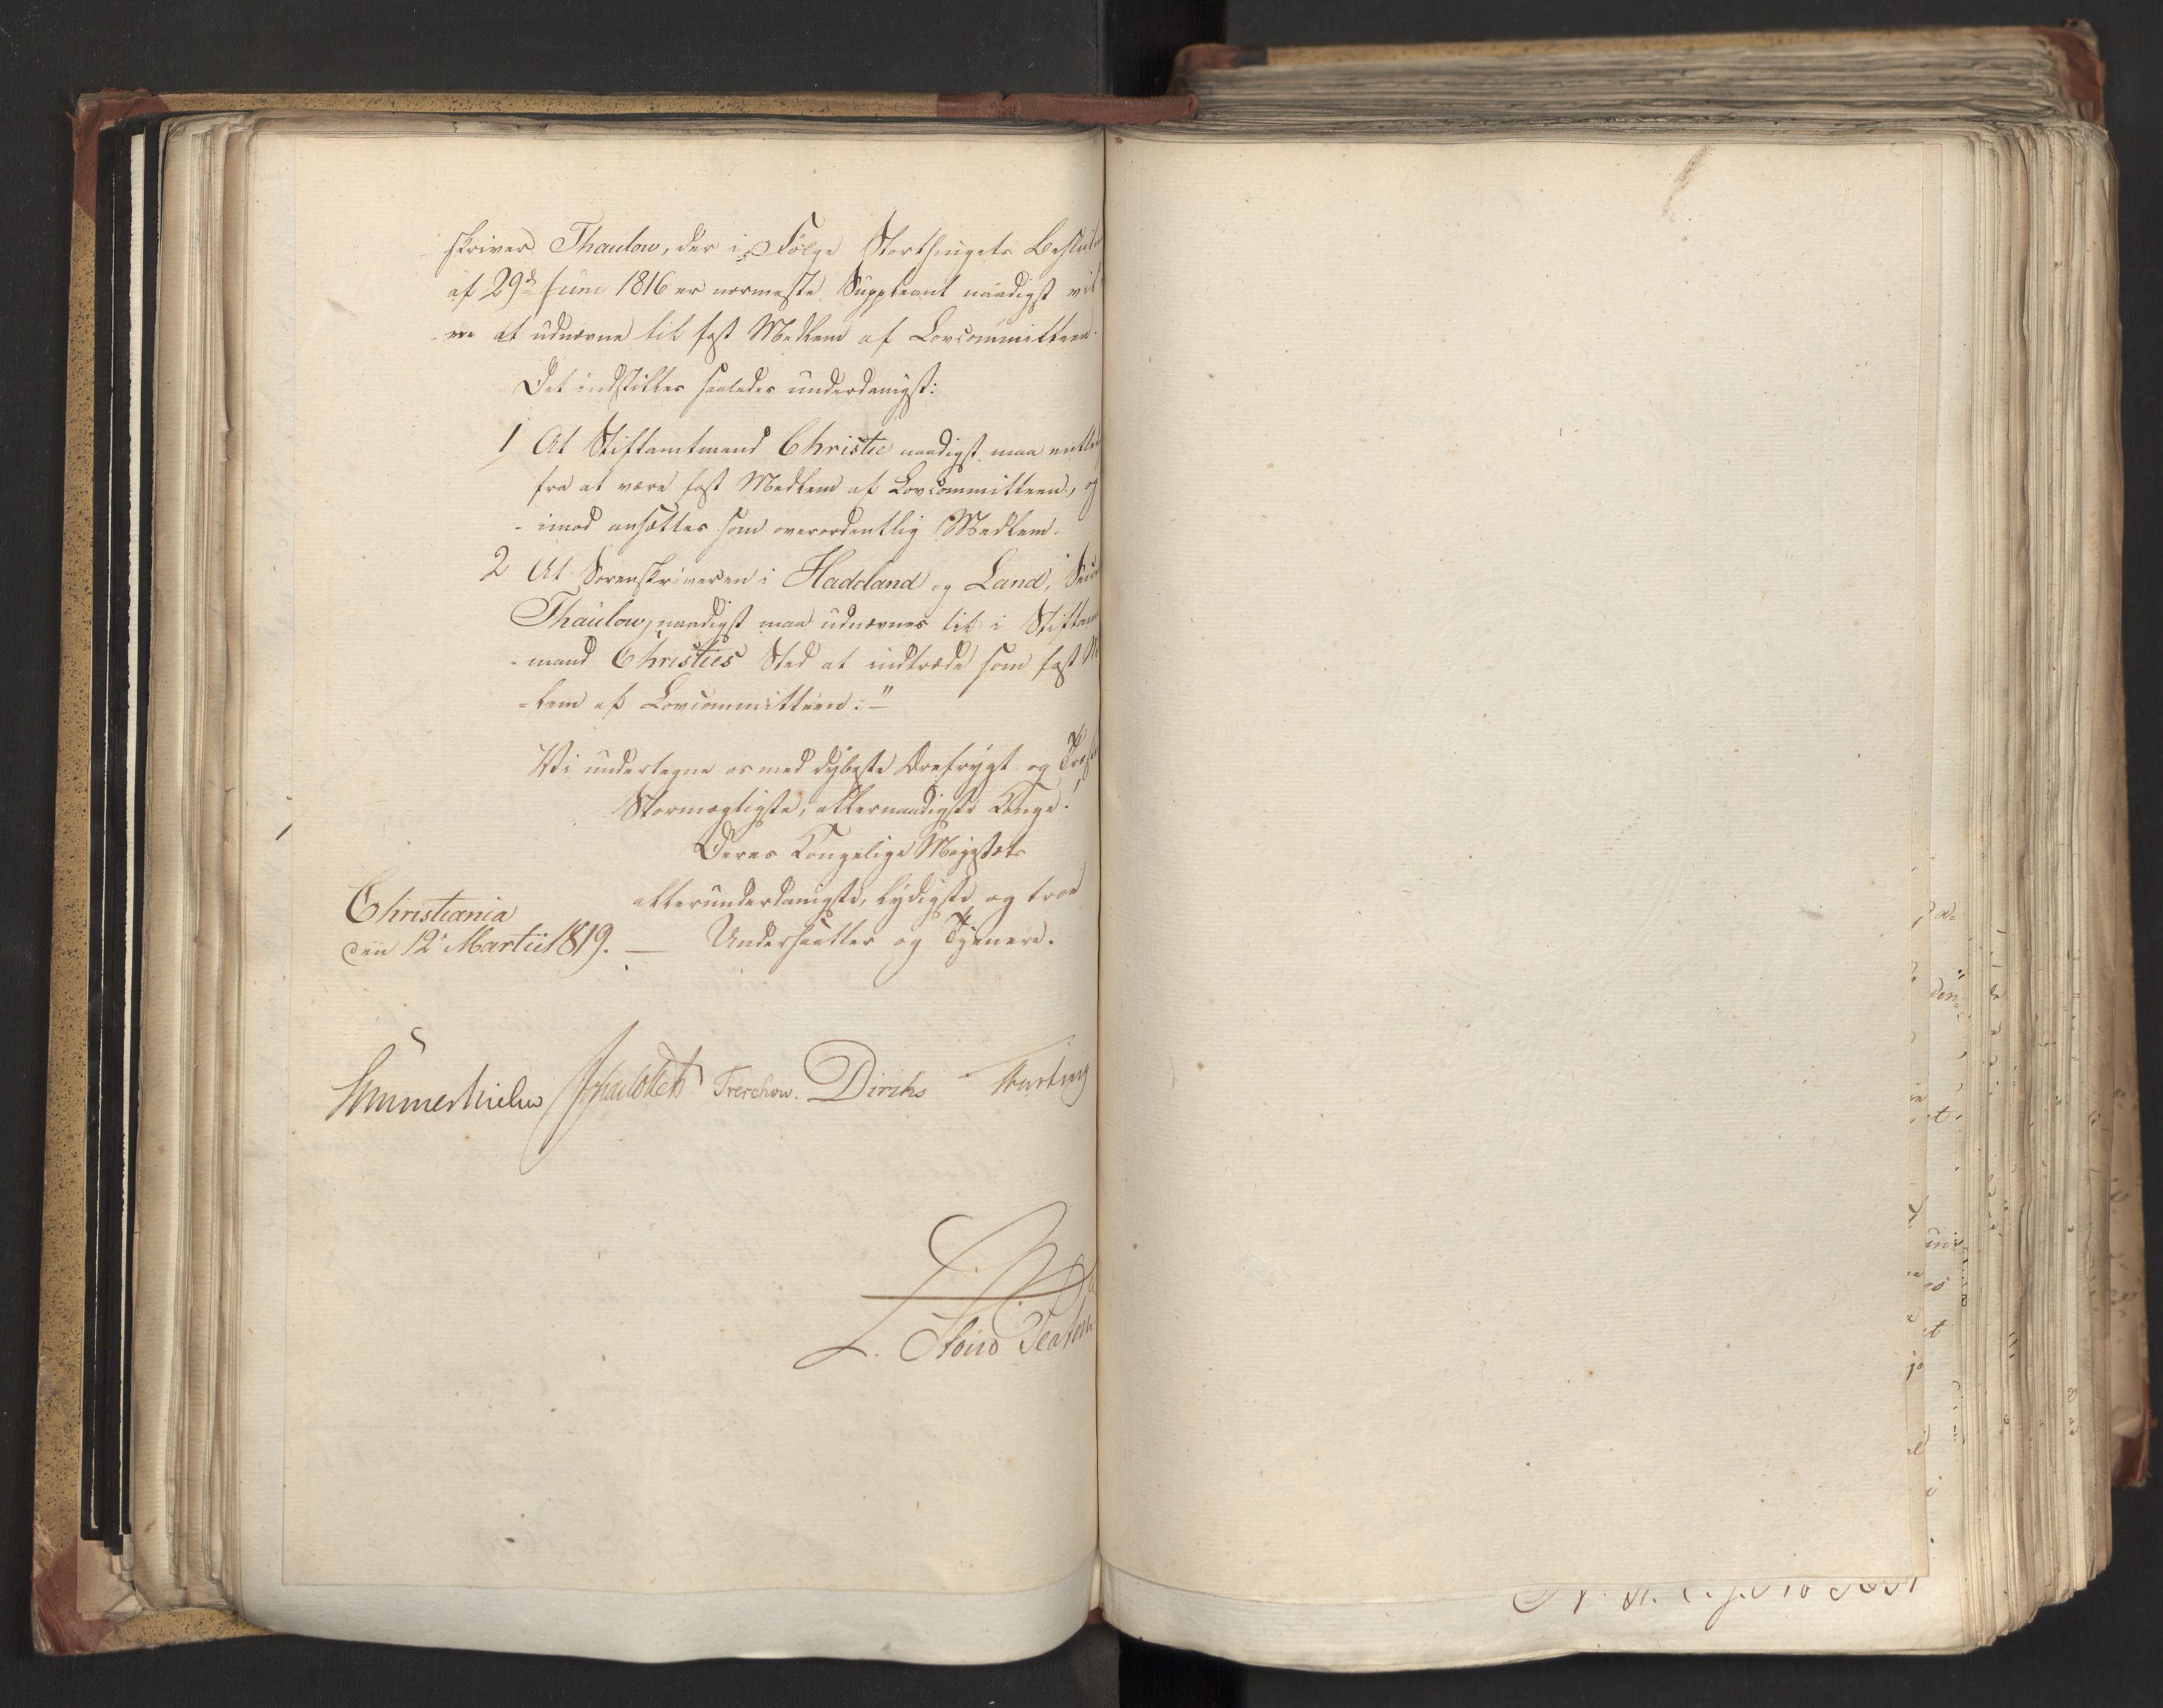 skriver Thaulow, der i Følge Storthingets Beslut
af 29de Juni 1816 er nærmeste Suppleant naadigst vil
-re at udnævne til fast Medlem af Lovcommitteen.
Det indstilles saaledes underdanigst:
1 At Stiftamtmand Christie naadigst maa entle
fra at være fast Medlem af Lovcommitteen, og
-imod ansættes som overordentlig Medlem.
2 At Sorenskriveren i Hadeland og Land,
Thaulow, naadigst maa udnævnes til i Stiftam
-mand Christies Sted at indtræde som fast M
-lem af Lovcommitteen."
Vi undertegne os med dybeste Ærefrygt og Trosk
Stormægtigste, allernaadigste Konge!
Deres Kongelige Majestæts
allerunderdanigste, lydigste og troe
Christiania
den 12 Martii 1819. — Undersaatter og Tjenere.
Sommerhielm Treschow. Diriks
L.